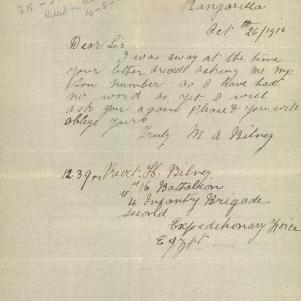 Killed in
16-8-
Kangarilla
Oct 26/1916
Dear Sir
I was away at the time
your letter arived asking me my
Son number as I have had
no word as yet I will
ask you again please & you will
oblige yours
Truly M A Bilney
1239 Privet. H. Bilney
"16 Battalion
"4 Infantry Brigade
Second
Expeditionary Force
Egypt